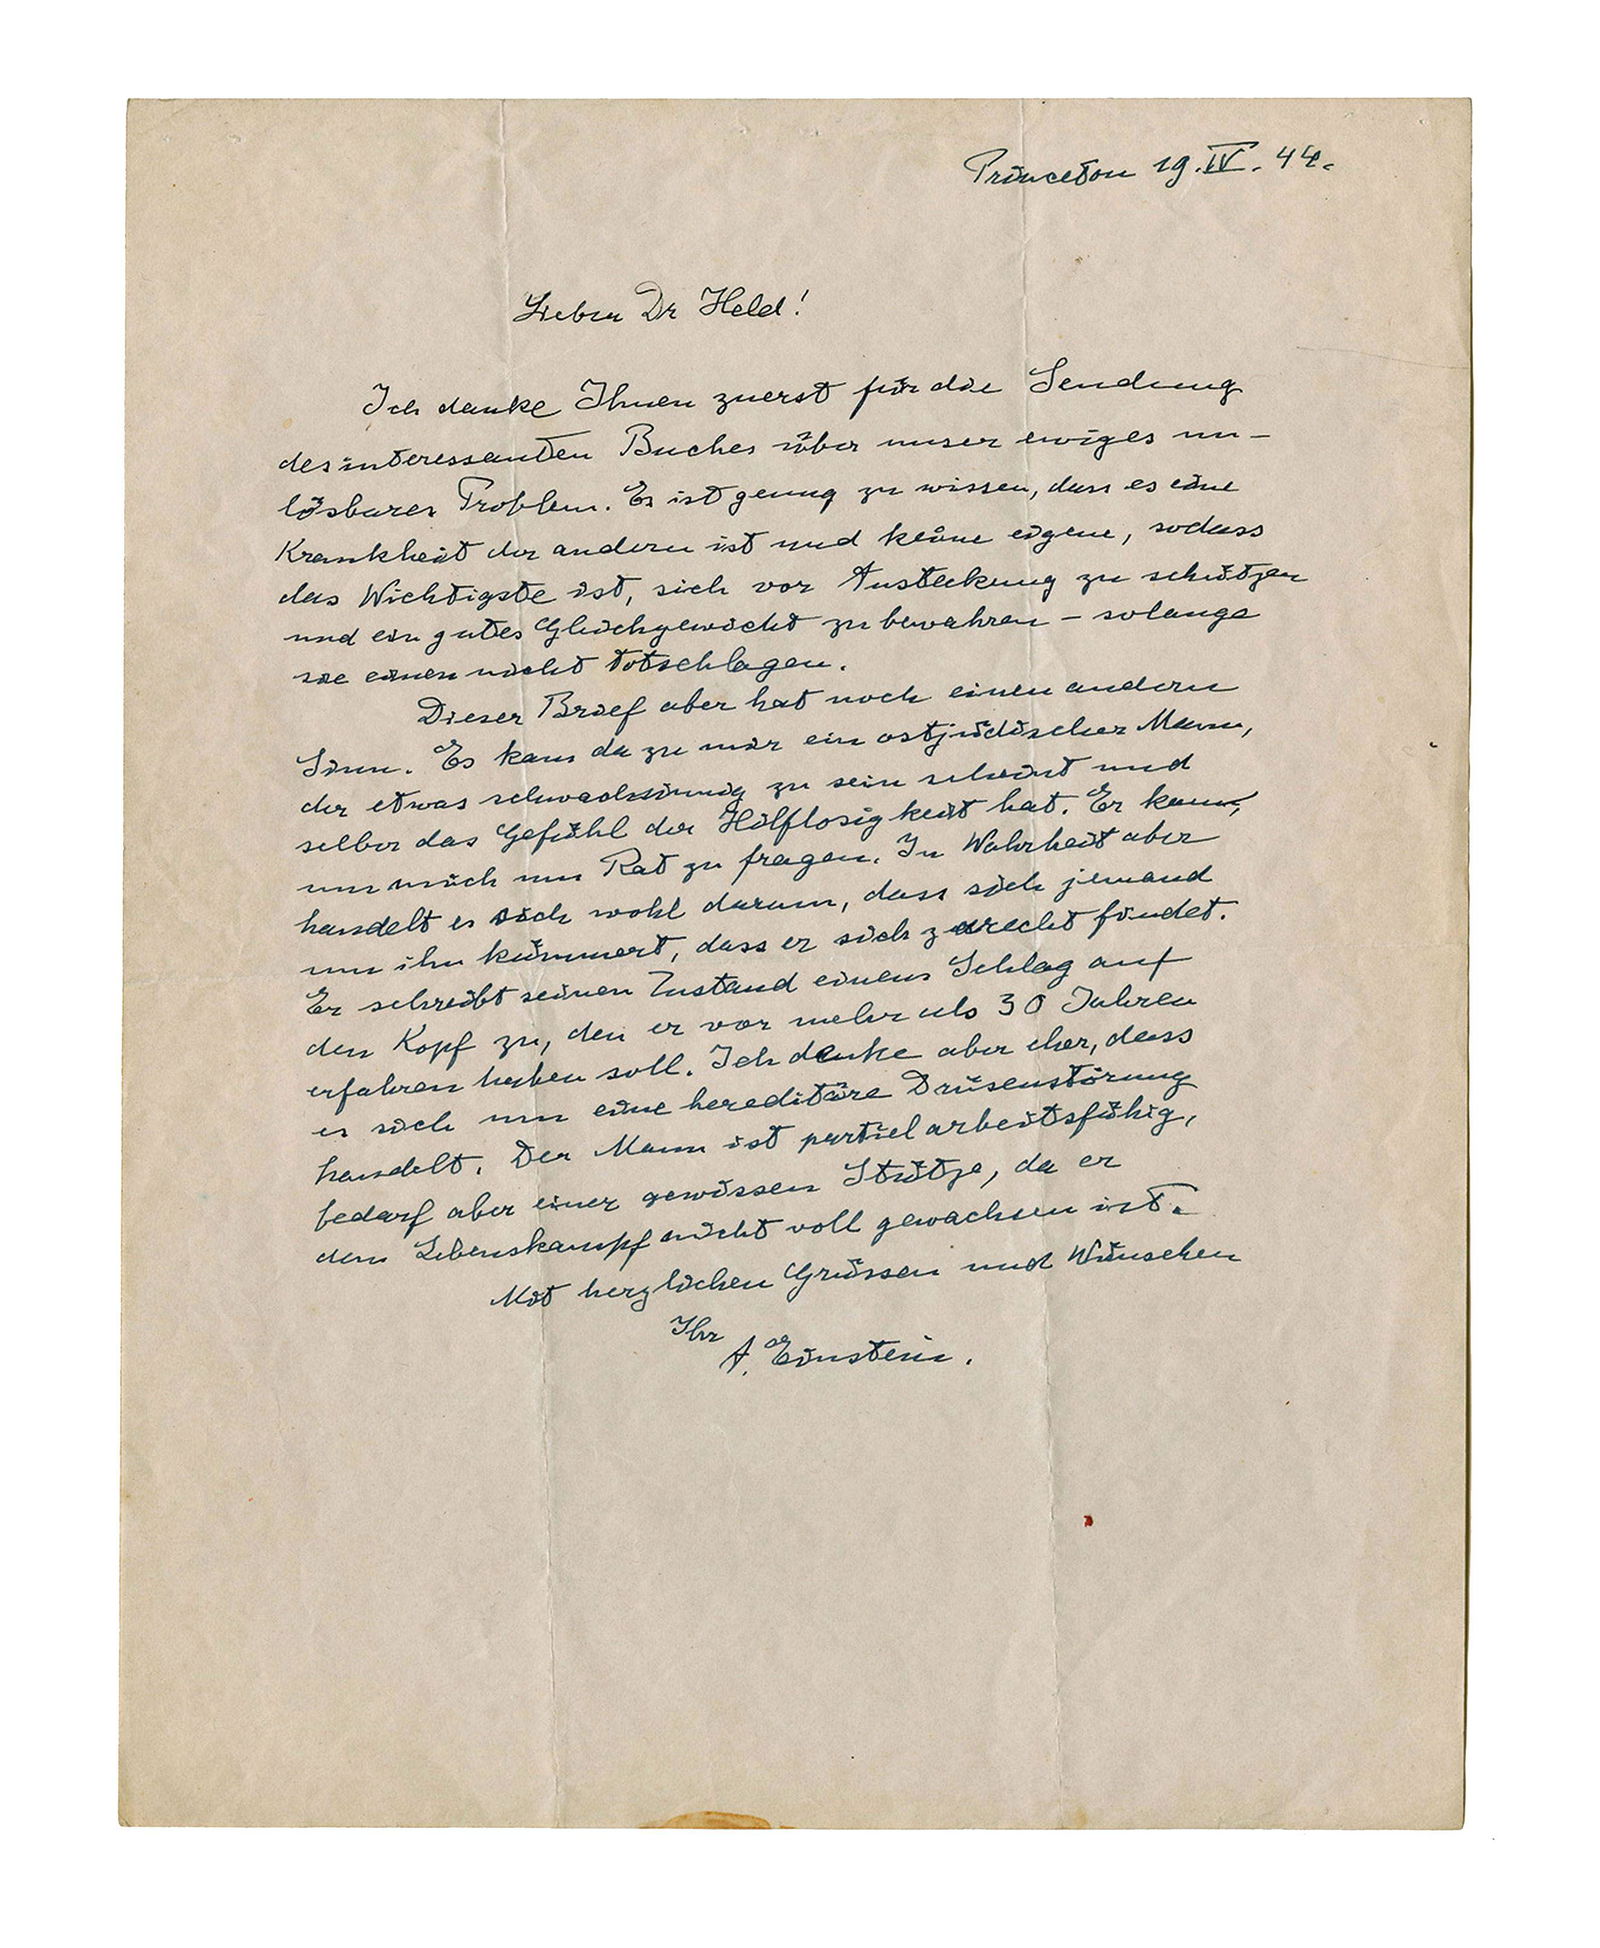 Princeton 19.IV.44.
Lieber Dr Held!
Ich danke Ihnen zuerst für die Sendung
des interessanten Buches über unser ewiges un-
lösbares Problem. Es ist genug zu wissen, dass es eine
Krankheit der andern ist und keine eigene, sodass
das Wichtigste ist, sich vor Ansteckung zu schützen
und ein gutes Gleichgewicht zu bewahren – solange
sie einen nicht totschlagen.
Dieser Brief aber hat noch einen andern
Sinn. Es kam da zu mir ein ostjüdischer Mann,
der etwas schwachsinnig zu sein scheint und
selber das Gefühl der Hilflosigkeit hat. Er kam,
um mich um Rat zu fragen. In Wahrheit aber
handelt es sich wohl darum, dass sich jemand
um ihn kümmert, dass er sich zurecht findet.
Er schreibt seinen Zustand einem Schlag auf
den Kopf zu, den er vor mehr als 30 Jahren
erfahren haben soll. Ich denke aber eher, dass
es sich um eine hereditäre Drüsenstörung
handelt. Der Mann ist partiel arbeitsfähig,
bedarf aber einer gewissen Stütze, da er
dem Lebenskampf nicht voll gewachsen ist.
Mit herzlichen Grüssen und Wünschen
Ihr
A. Einstein.